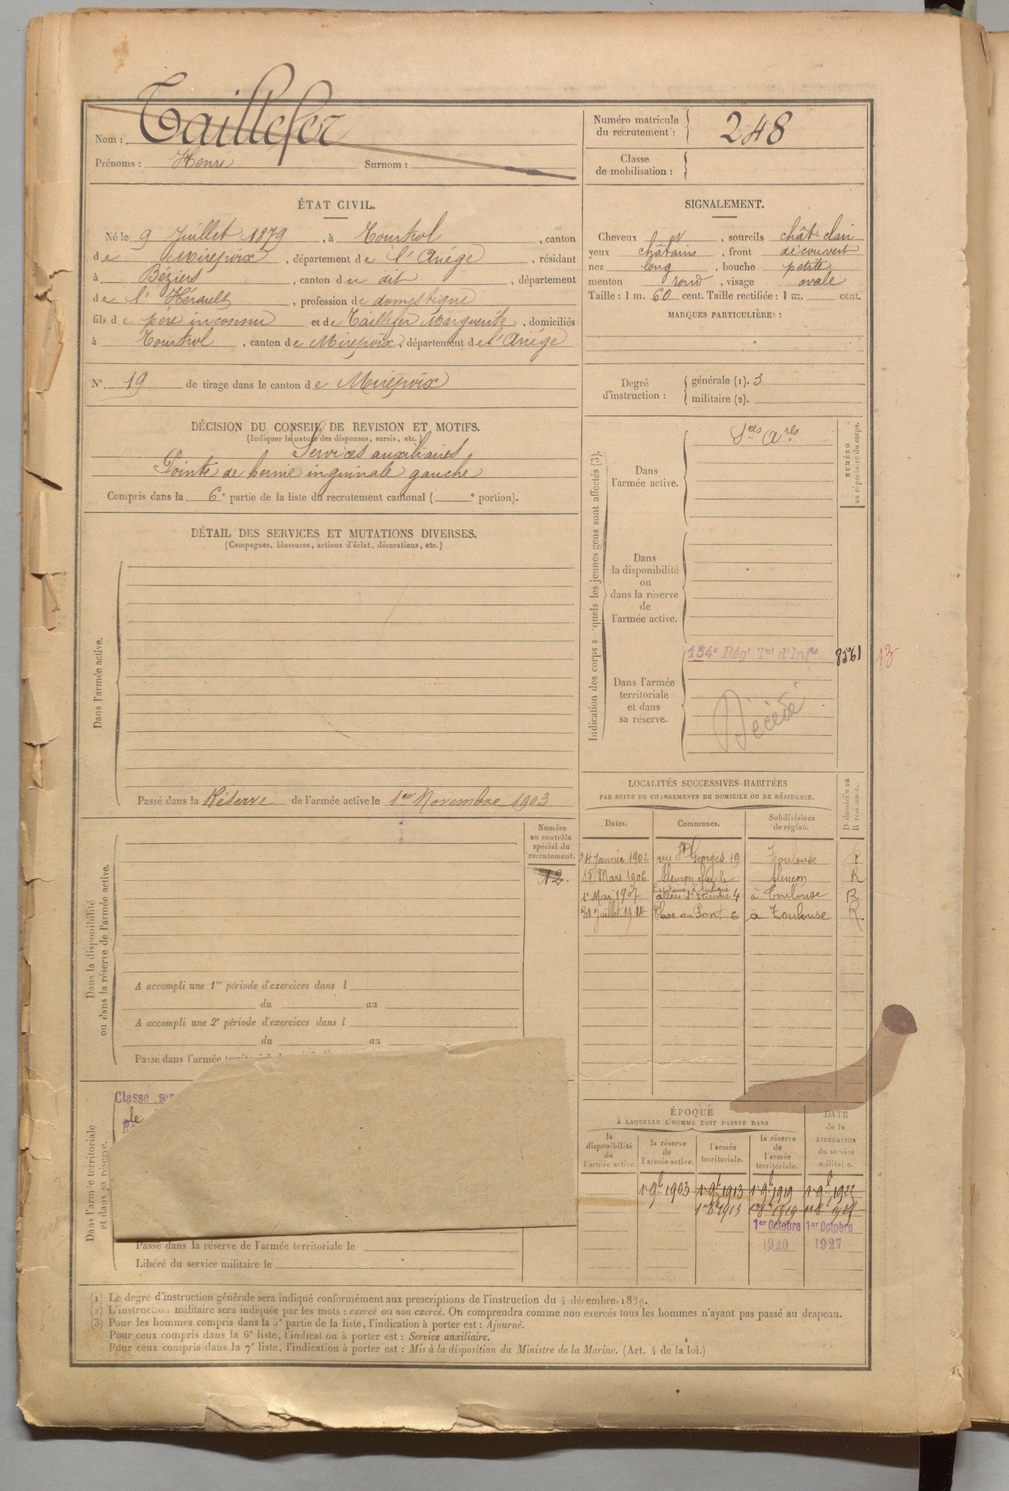 Nom : Taillefer
Prénoms : Henri Surnom :
Numéro matricule du recrutement : 248
Classe de mobilisation :
ÉTAT CIVIL.
Né le 9 Juillet 1879, à Tourtrol, canton
de Mirepoix, département de l'Ariège, résidant
à Béziers, canton du dit, département
de l'Hérault, profession de domestique
fils de père inconnu et de Taillefer Marguerite, domiciliés
à Tourtrol, canton de Mirepoix, département de l'Ariège
N° 19 de tirage dans le canton de Mirepoix
SIGNALEMENT.
Cheveux et, sourcils chât clair
yeux châtains, front découvert
nez long, bouche petite
menton rond, visage ovale
Taille : 1 m. 60 cent. Taille rectifiée : 1 m. cent.
MARQUES PARTICULIÈRES :
Degré d'instruction : générale (1). 3
militaire (2).
DÉCISION DU CONSEIL DE REVISION ET MOTIFS.
(Indiquer la nature des dispenses, sursis, etc.
Services auxiliaires
Pointe de hernie inguinale gauche
Compris dans la 6e partie de la liste du recrutement cantonal ( e portion).
DÉTAIL DES SERVICES ET MUTATIONS DIVERSES.
(Campagnes, blessures, actions d'éclat, décorations, etc.)
Dans l'armée active.
Passé dans la Réserve de l'armée active le 1er Novembre 1903
Indication des corps auxquels les jeunes gens sont affectés (3).
NUMÉRO au répertoire du corps.
Dans l'armée active.
Sces Ares
Dans la disponibilité ou dans la réserve de l'armée active.
Dans l'armée territoriale et dans sa réserve.
134e Régt Tal d'Infie 8561 13
Décédé
LOCALITÉS SUCCESSIVES HABITÉES
PAR SUITE DE CHANGEMENTS DE DOMICILE OU DE RÉSIDENCE.
Dates. Communes. Subdivisions de région. D domicile ou R résidence.
24 Janvier 1902 rue St Georges 19 Toulouse R
15 Mars 1906 Alençon Alençon R
1er Mai 1907 allées St Etienne 4 à Toulouse R
21 Juillet 1914 Place du Pont 6 à Toulouse R
Numéro au contrôle spécial du recrutement.
12.
Dans la disponibilité ou dans la réserve de l'armée active.
A accompli une 1re période d'exercices dans l
du au
A accompli une 2e période d'exercices dans l
du au
Passé dans l'armée territoriale
Dans l'armée territoriale et dans sa réserve.
Classe ser
le
Passé dans la réserve de l'armée territoriale le
Libéré du service militaire le
ÉPOQUE
À LAQUELLE L'HOMME DOIT PASSER DANS
DATE de la LIBÉRATION du service militaire.
la disponibilité de l'armée active. la réserve de l'armée active. l'armée territoriale. la réserve de l'armée territoriale.
1er 9bre 1903 1er 9bre 1913 1er 9bre 1919
1er 8bre 1913 1er 8bre 1919
1er Octobre 1er Octobre
1920 1927
(1) Le degré d'instruction générale sera indiqué conformément aux prescriptions de l'instruction du 4 décembre 1889.
(2) L'instruction militaire sera indiquée par les mots : exercé ou non exercé. On comprendra comme non exercés tous les hommes n'ayant pas passé au drapeau.
(3) Pour les hommes compris dans la 5e partie de la liste, l'indication à porter est : Ajourné.
Pour ceux compris dans la 6e liste, l'indication à porter est : Service auxiliaire.
Pour ceux compris dans la 7e liste, l'indication à porter est : Mis à la disposition du Ministre de la Marine. (Art. 4 de la loi.)